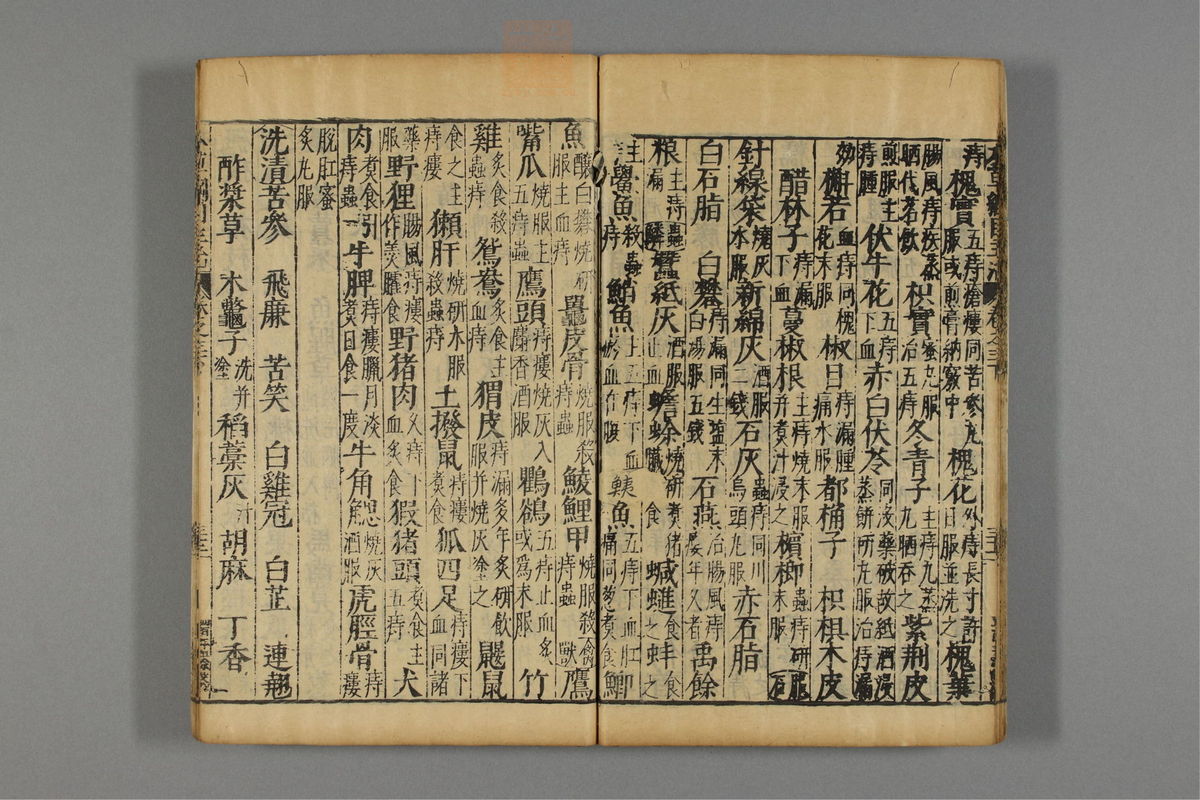 痔 槐實五痔瘡瘻同苦參丸服或煎膏納竅中 槐花外痔長寸許日服並洗之 槐葉
腸風痔疾蒸晒代茗飲 枳實蜜丸服治五痔 冬青子主痔九蒸九晒吞之 紫荆皮
煎服主痔腫 伏牛花五痔下血 赤白伏苓同沒藥破故紙酒浸蒸餅研丸服治痔漏
効 槲若血痔同槐花末服 椒目痔漏腫痛水服 都桷子 枳椇木皮
醋林子痔漏下血 蔓椒根主痔燒末服并煮汁浸之 檳榔蟲痔研末服 服石
針線袋燒灰水服 新綿灰酒服二錢 石灰蟲痔同川烏頭丸服 赤石脂
白石脂 白礬痔漏同生鹽末白湯服五錢 石燕治腸風痔瘻年久者 禹餘
粮主痔漏 蟲鱗 蠶紙灰酒服止血 蟾蜍燒研煮猪臟食 蝛䗯食之 蚌食之
鱟魚殺蟲痔 鮹魚主五痔下血瘀血在腹 鮧魚五痔下血肛痛同葱煮食 鯽
魚釀白礬燒研服主血痔 鼉皮骨燒服殺痔蟲 鯪鯉甲燒服殺痔蟲 禽獸 鷹
嘴爪燒服主五痔蟲 鷹頭痔瘻燒灰入麝香酒服 鸜鵒五痔止血炙或爲末服 竹
雞炙食殺蟲痔 鴛鴦炙食主血痔 猬皮痔漏多年炙研飲服并燒灰塗之 鼴鼠
食之主痔瘻 獺肝燒研水服殺蟲痔 土撥鼠痔瘻煮食 狐四足痔瘻下血同諸
藥服 野狸腸風痔瘻作羹臛食 野猪肉久痔下血炙食 豭猪頭煮食主五痔 犬
肉煮食引痔蟲 牛脾痔瘻臘月淡煮日食一度 牛角䚡燒灰酒服 虎脛骨痔瘻
脫肛蜜炙丸服
洗漬苦參 飛廉 苦芺 白雞冠 白芷 連翹
酢漿草 木鼈子洗并塗 稻藁灰汁 胡麻 丁香